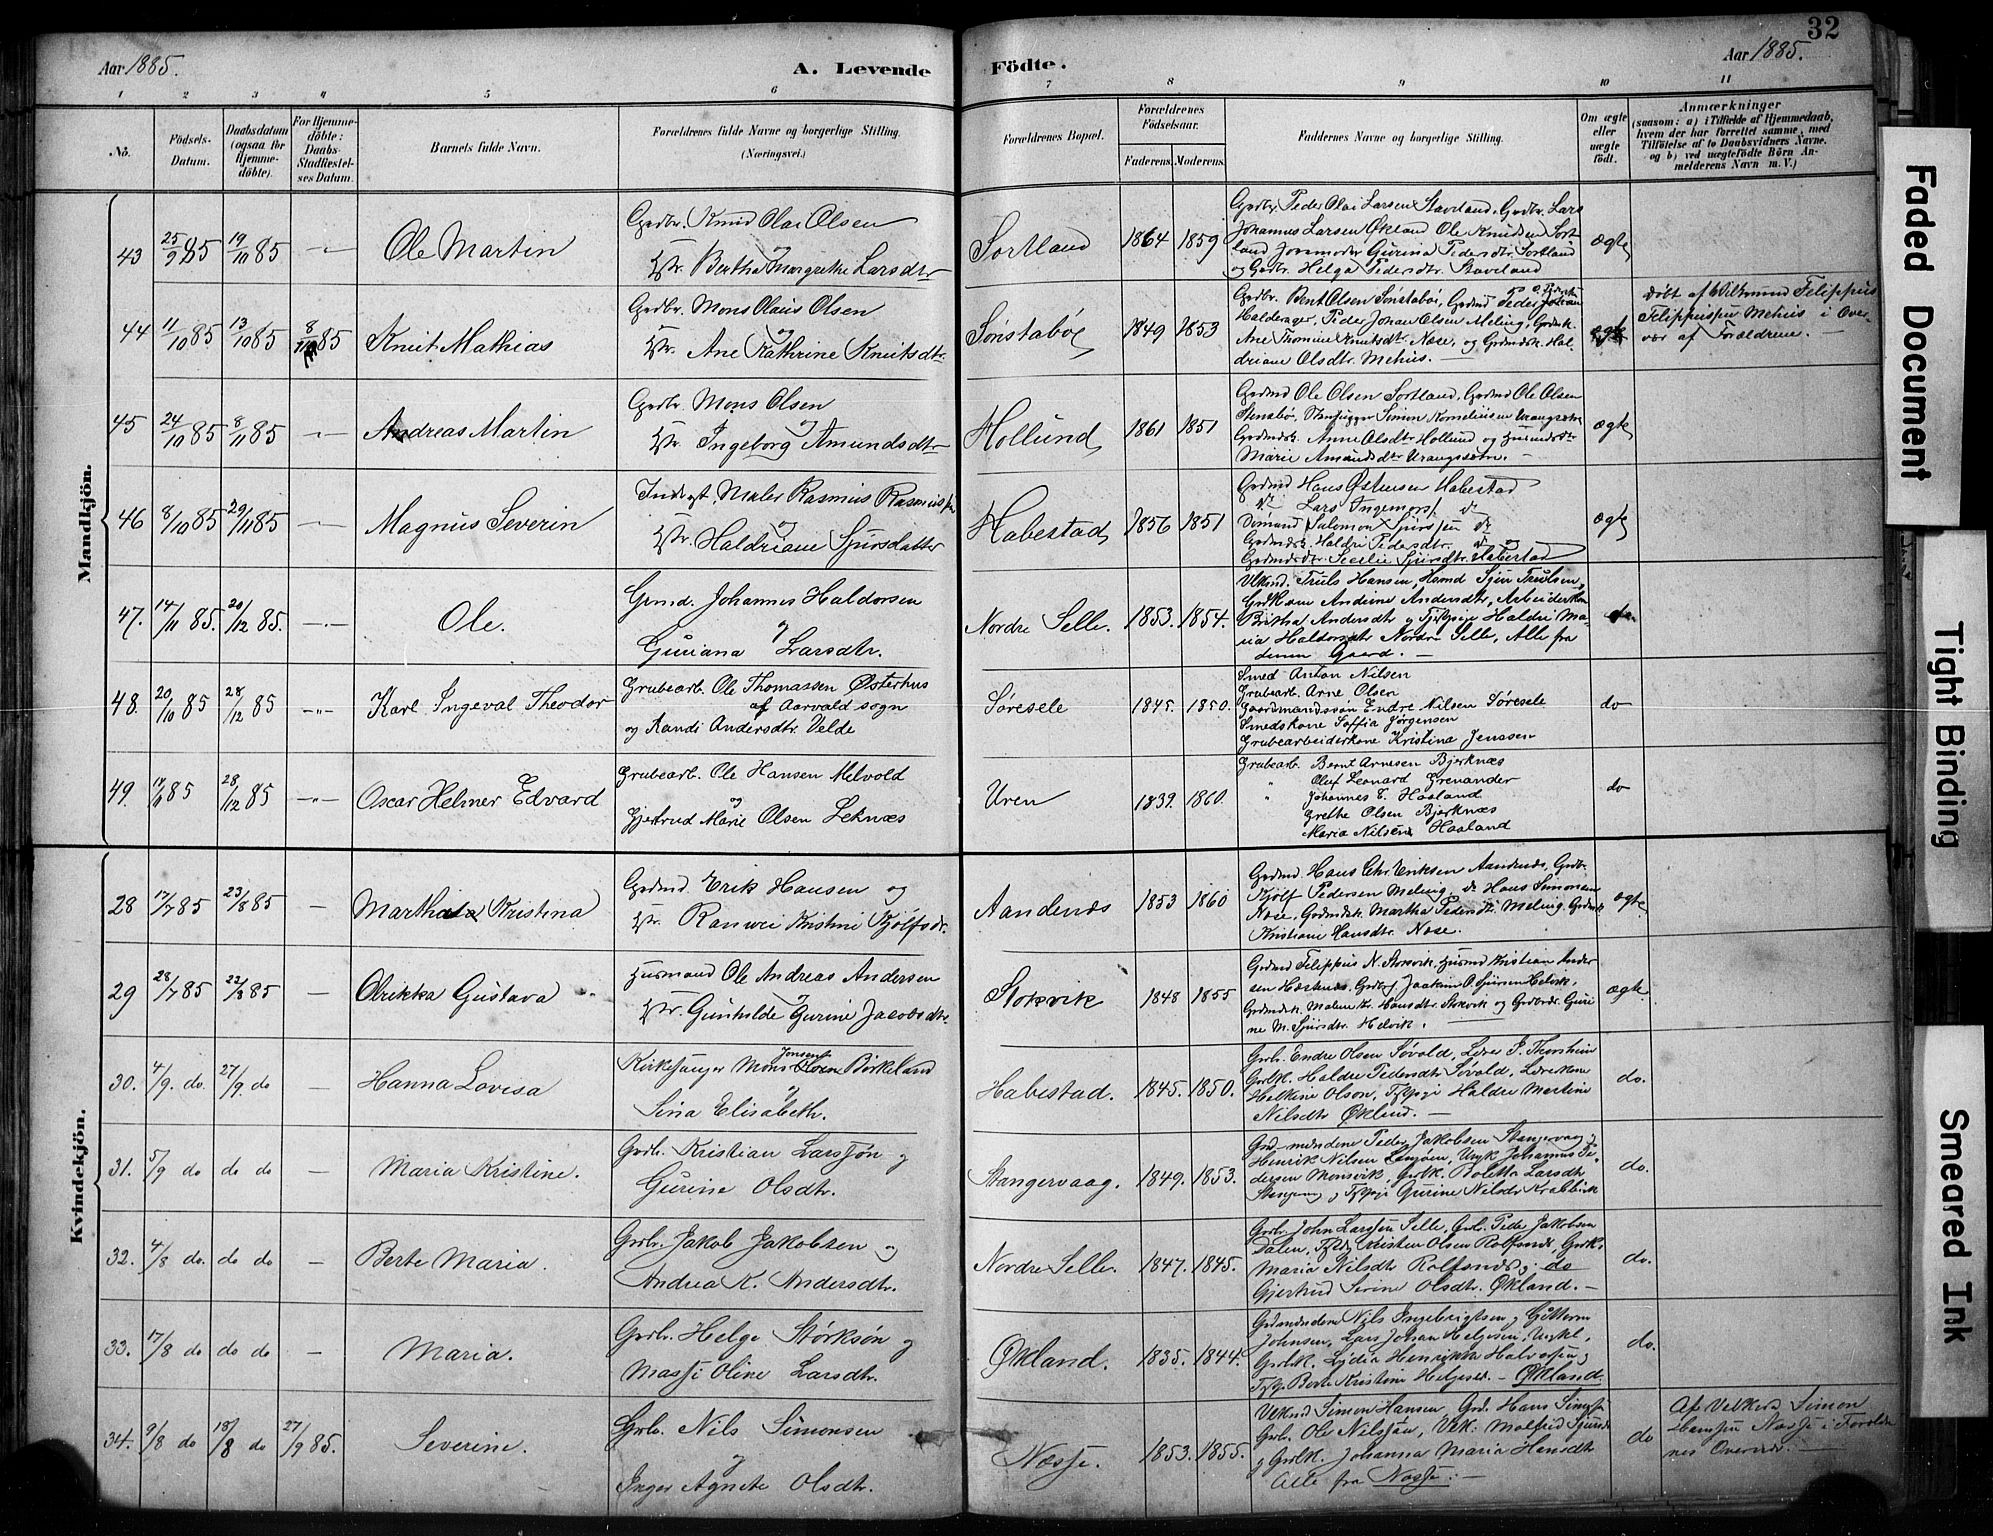 32
Aar 1885.
A. Levende Födte.
Aar 1885.
1 2 3 4 5 6 7 8 9 10 11
No.
Födsels-Datum.
Daabsdatum (ogsaa for Hjemme-döbte).
For Hjemme-döbte: Daabs-Stadfæstel-ses Datum.
Barnets fulde Navn.
Forældrenes fulde Navne og borgerlige Stilling.
(Næringsvei.)
Forældrenes Bopæl.
Forældrenes Födselsaar.
Faderens. Moderens.
Faddernes Navne og borgerlige Stilling.
Om ægte eller uægte födt.
Anmærkninger
(saasom: a) i Tilfælde af Hjemmedaab,
hvem der har forrettet samme, med
Tilföielse af to Daabsvidners Navne.
og b) ved uægtefödte Börn An-
melderens Navn m. V.)
Mandkjön.
43 25/9 85 19/10 85 Ole Martin
Grdbr. Knud Olai Olsen
og
Hstr. Bertha Margrethe Larsdtr
Sortland 1864 1859
Grdbr. Peder Olai Larsen Staveland, Grdbr. Lars
Johannes Larsen Økland Ole Knudsen Sort-
land Jormoder Gurina Pedersdtr. Sortland
og Grdbr. Helga Pedersdtr. Staveland
ægte
44 11/10 85 13/10 85 8/11 85 Knut Mathias
Grdbr. Mons Olaus Olsen
og
Hstr. Ane Kathrine Knutsdtr
Sønstabø 1849 1853
Grdbr. Bent Olsen Sønstabø, Grdmd Peder Johan
Halderager, Peder Johan Olsen Meling, Grdmdk.
Ane Thomine Knutsdtr Næse, og Grdmdsk. Hal-
driane Olsdtr. Mehus.
ægte
Døbt af Filippus
Filippussen Mehus i Over-
vær af Forældrene.
45 24/10 85 8/11 85 Andreas Martin
Grdbr. Mons Olsen
og
Hstr. Ingeborg Amundsdtr
Hollund 1861 1851
Grdmd Ole Olsen Sortland, Grdmd Ole Olsen
Stensbø, Simon Korneliussen Urangsvåg
Grdmdsk. Anne Olsdtr Hollund og
Marie Amundsdtr Urangsvåg.
ægte
46 8/10 85 29/11 85 Magnus Severin
Maler Rasmus Rasmussen
og
Hstr. Haldriane Sjursdatter
Habestad 1856 1851
Grdmd Hans Østensen Habestad
Lars Ingemors.
Sømand Salomon Sjurssen do
Grdmdsk. Haldri Pedersdtr. do og
Grdmdsdtr. Secelie Sjursdtr. Habestad
ægte
47. 14/11 85. 20/12 85. Ole.
Grmd. Johannes Haldorsen
og
Guriana Larsdtr.
Nordre Selle. 1853. 1854.
Ulkmd. Truls Hansen, Hsmd Sjur Trulsen,
Grdkone Andrine Andersdtr, Arbeiderkone
Britha Andersdtr og Tjpige Haldri Ma-
ria Haldorsdtr Nordre Selle, Alle fra
denne Gaard.
do.
48. 20/10 85 28/12 85 Karl Ingeval Theodor
Grubearb. Ole Thomassen Østerhus
af Aarvald sogn
og Randi Andersdtr. Velde
Søresele 1845. 1850.
Smed Anton Nilsen
Grubearb. Arne Olsen
Gaardmandssøn Endre Nilsen Søresele
Smedskone Soffia Jørgensen
Grubearbeiderkone Kristina Jenssen
do
49. 85 28/12 85 Oscar Helmer Edvard
Grubearb. Ole Hansen Melvold
og
Gjertrud Marie Olsen Leknæs
Uren 1839. 1860.
Grubearb. Bernt Arnesen Bjerknæs
" Oluf Leonard Grenander
" Johannes E. Haaland
Grethe Olsen Bjerknæs
Maria Nilsen Haaland
do
Kvindekjön.
28 17/7 85 23/8 85 Martha Kristina
Grdmd. Erik Hansen og
Hstr. Ranvei Kristine Kjølfsdr.
Aandenæs 1853 1860
Grdmd. Hans Chr. Eriksen Aandenæs, Grdbr.
Kjølf Pedersen Meling, do Hans Simonsen
Næse, Grdmdsk. Martha Pedersdtr. Meling, Grdmdsk
Kristiane Hansdtr. Næse.
ægte
29 28/7 85 23/8 85 Olrikka Gustava
Husmand Ole Andreas Andersen
og
Hstr. Gunhilde Gurine Jacobsdtr.
Stokvik 1848 1855
Grdmd Filippus N. Stokvik, Husmd Kristian Ander-
sen Hæstnæs, Grdbrs. Joakim O. Sjursen Helvik,
Grdmdsk. Malene Kr. Hansdtr. Stokvik og Grdbrdr. Guri-
ne M. Sjursdtr. Helvik.
ægte
30. 4/9. do. 27/9. do Hanna Lovisa
Kirkesanger Mons Jonsen Børkeland
og
Sina Elisabeth.
Habestad. 1845. 1850.
Grbr. Endre Olsen Søvold, Lærer P. Thorsheim
Grbk. Haldre Pedersdtr Søvold, Lærerkone
Helkine Olson, Tjpige Haldre Martine
Nilsdtr Økland.
do.
31. 5/9 do do do Maria Kristine.
Grdbr. Kristian Larssøn og
Gurine Olsdtr.
Stangervaag. 1849. 1853.
Grdmændene Peder Jakobsen Stangervaag og
Henrik Nilsen, Ungk Johannes Pe-
dersen Monsvik, Grdk. Boletta Larsdtr
og Tjpige Gurine Nilsdr
do.
32. 4/8 do. do do Berte Maria.
Grdbr. Jakob Jakobsen og
Andrea K. Andersdtr.
Nordre Selle. 1847. 1845.
Grdbr. John Larssen Selle, Grbr. Peder Jakobsen
Dalen, Kristen Olsen Rolfsnæs, Grdk.
Maria Nilsdtr Rolfsnæs, do
Gjertrud Sirine Olsdtr. Økland.
do.
33. 17/8 do do do Maria.
Grdbr. Helge Størksøn og
Massi Oline Larsdtr.
Økland. 1835. 1844.
Grdmændene Nils Ingebrigtsen, Guttorm
Johnsen, Lars Johan Helgesen, Ungkl.,
Grdbk. Lydia Henrikka Halvorsen,
Tjp. Berte Kristine Helgesen. Økland.
do.
34. 9/8 do 18/8 do 27/9 85. Severine.
Grbr. Nils Simonsen
og
Inger Agnete Olsdtr.
Næsse. 1853. 1855.
Simon Hansen, Grd. Hans
Grdbr. Ole Nilssøn, Malfrid
og Grdbk. Johanna Maria Hansdtr
Alle fra Næsse.
do
Af Simon
Hansen Næsse i Foreldre-
nes Overvær.
Faded Document
Tight Binding
Smeared Ink